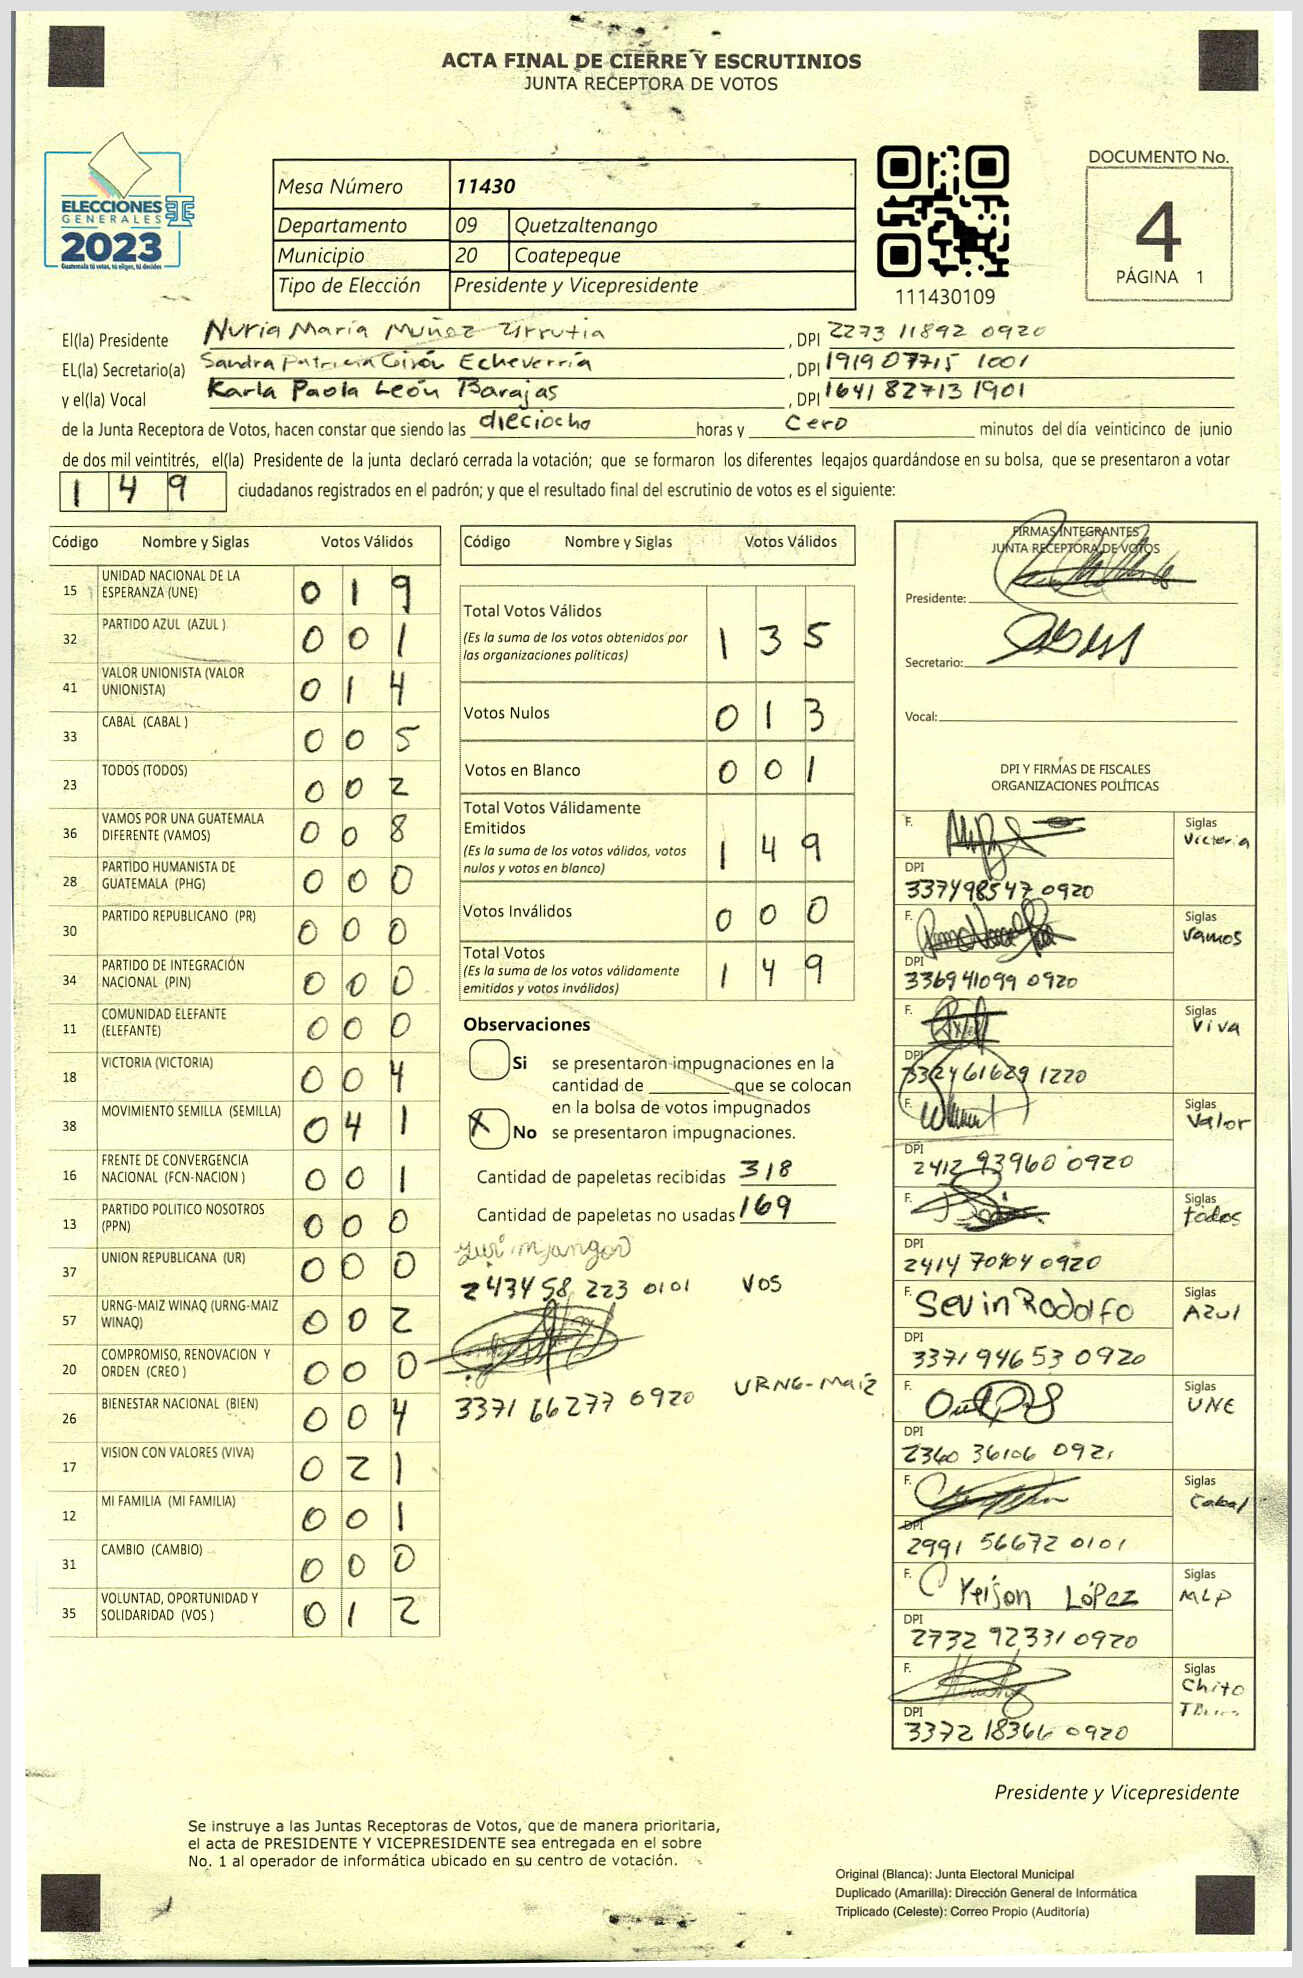 ACTA FINAL DE CIERRE Y ESCRUTINIOS
JUNTA RECEPTORA DE VOTOS
ELECCIONES
GENERALES
2023
Guatemala tú votas, tú eliges, tú decides
Mesa Número 11430
Departamento 09 Quetzaltenango
Municipio 20 Coatepeque
Tipo de Elección Presidente y Vicepresidente
111430109
DOCUMENTO No.
4
PÁGINA 1
El(la) Presidente Nuria María Muñoz Urrutia, DPI 2273 11892 0920
EL(la) Secretario(a) Sandra Patricia Girón Echeverría, DPI 1919 07715 1001
y el(la) Vocal Karla Paola León Barajas, DPI 1641 82713 1901
de la Junta Receptora de Votos, hacen constar que siendo las dieciocho horas y cero minutos del día veinticinco de junio
de dos mil veintitrés, el(la) Presidente de la junta declaró cerrada la votación; que se formaron los diferentes legajos guardándose en su bolsa, que se presentaron a votar
149 ciudadanos registrados en el padrón; y que el resultado final del escrutinio de votos es el siguiente:
Código Nombre y Siglas Votos Válidos
15 UNIDAD NACIONAL DE LA ESPERANZA (UNE) 019
32 PARTIDO AZUL (AZUL ) 001
41 VALOR UNIONISTA (VALOR UNIONISTA) 014
33 CABAL (CABAL ) 005
23 TODOS (TODOS) 002
36 VAMOS POR UNA GUATEMALA DIFERENTE (VAMOS) 008
28 PARTIDO HUMANISTA DE GUATEMALA (PHG) 000
30 PARTIDO REPUBLICANO (PR) 000
34 PARTIDO DE INTEGRACIÓN NACIONAL (PIN) 000
11 COMUNIDAD ELEFANTE (ELEFANTE) 000
18 VICTORIA (VICTORIA) 004
38 MOVIMIENTO SEMILLA (SEMILLA) 041
16 FRENTE DE CONVERGENCIA NACIONAL (FCN-NACION ) 001
13 PARTIDO POLITICO NOSOTROS (PPN) 000
37 UNION REPUBLICANA (UR) 000
57 URNG-MAIZ WINAQ (URNG-MAIZ WINAQ) 002
20 COMPROMISO, RENOVACION Y ORDEN (CREO ) 000
26 BIENESTAR NACIONAL (BIEN) 004
17 VISION CON VALORES (VIVA) 021
12 MI FAMILIA (MI FAMILIA) 001
31 CAMBIO (CAMBIO) 000
35 VOLUNTAD, OPORTUNIDAD Y SOLIDARIDAD (VOS ) 012
Código Nombre y Siglas Votos Válidos
Total Votos Válidos 135
(Es la suma de los votos obtenidos por
las organizaciones políticas)
Votos Nulos 013
Votos en Blanco 001
Total Votos Válidamente
Emitidos 149
(Es la suma de los votos válidos, votos
nulos y votos en blanco)
Votos Inválidos 000
Total Votos 149
(Es la suma de los votos válidamente
emitidos y votos inválidos)
Observaciones
Si se presentaron impugnaciones en la
cantidad de ________ que se colocan
en la bolsa de votos impugnados
X No se presentaron impugnaciones.
Cantidad de papeletas recibidas 318
Cantidad de papeletas no usadas 169
243458 223 0101 VOS
3371 66277 0920 URNG-Maíz
FIRMAS INTEGRANTES
JUNTA RECEPTORA DE VOTOS
Presidente:
Secretario:
Vocal:
DPI Y FIRMAS DE FISCALES
ORGANIZACIONES POLÍTICAS
F. Siglas Victoria
DPI 337498547 0920
F. Siglas Vamos
DPI 336941099 0920
F. Siglas Viva
DPI 332461629 1220
F. Siglas Valor
DPI 2412 93960 0920
F. Siglas todos
DPI 2414 70404 0920
F. Sevin Rodolfo Siglas Azul
DPI 3371 94653 0920
F. Siglas UNE
DPI 2360 36106 0921
F. Siglas Cabal
DPI 2991 56672 0101
F. Yeison López Siglas MLP
DPI 2732 92331 0920
F. Siglas Chito
DPI 3372 18366 0920
Presidente y Vicepresidente
Se instruye a las Juntas Receptoras de Votos, que de manera prioritaria,
el acta de PRESIDENTE Y VICEPRESIDENTE sea entregada en el sobre
No. 1 al operador de informática ubicado en su centro de votación.
Original (Blanca): Junta Electoral Municipal
Duplicado (Amarilla): Dirección General de Informática
Triplicado (Celeste): Correo Propio (Auditoría)